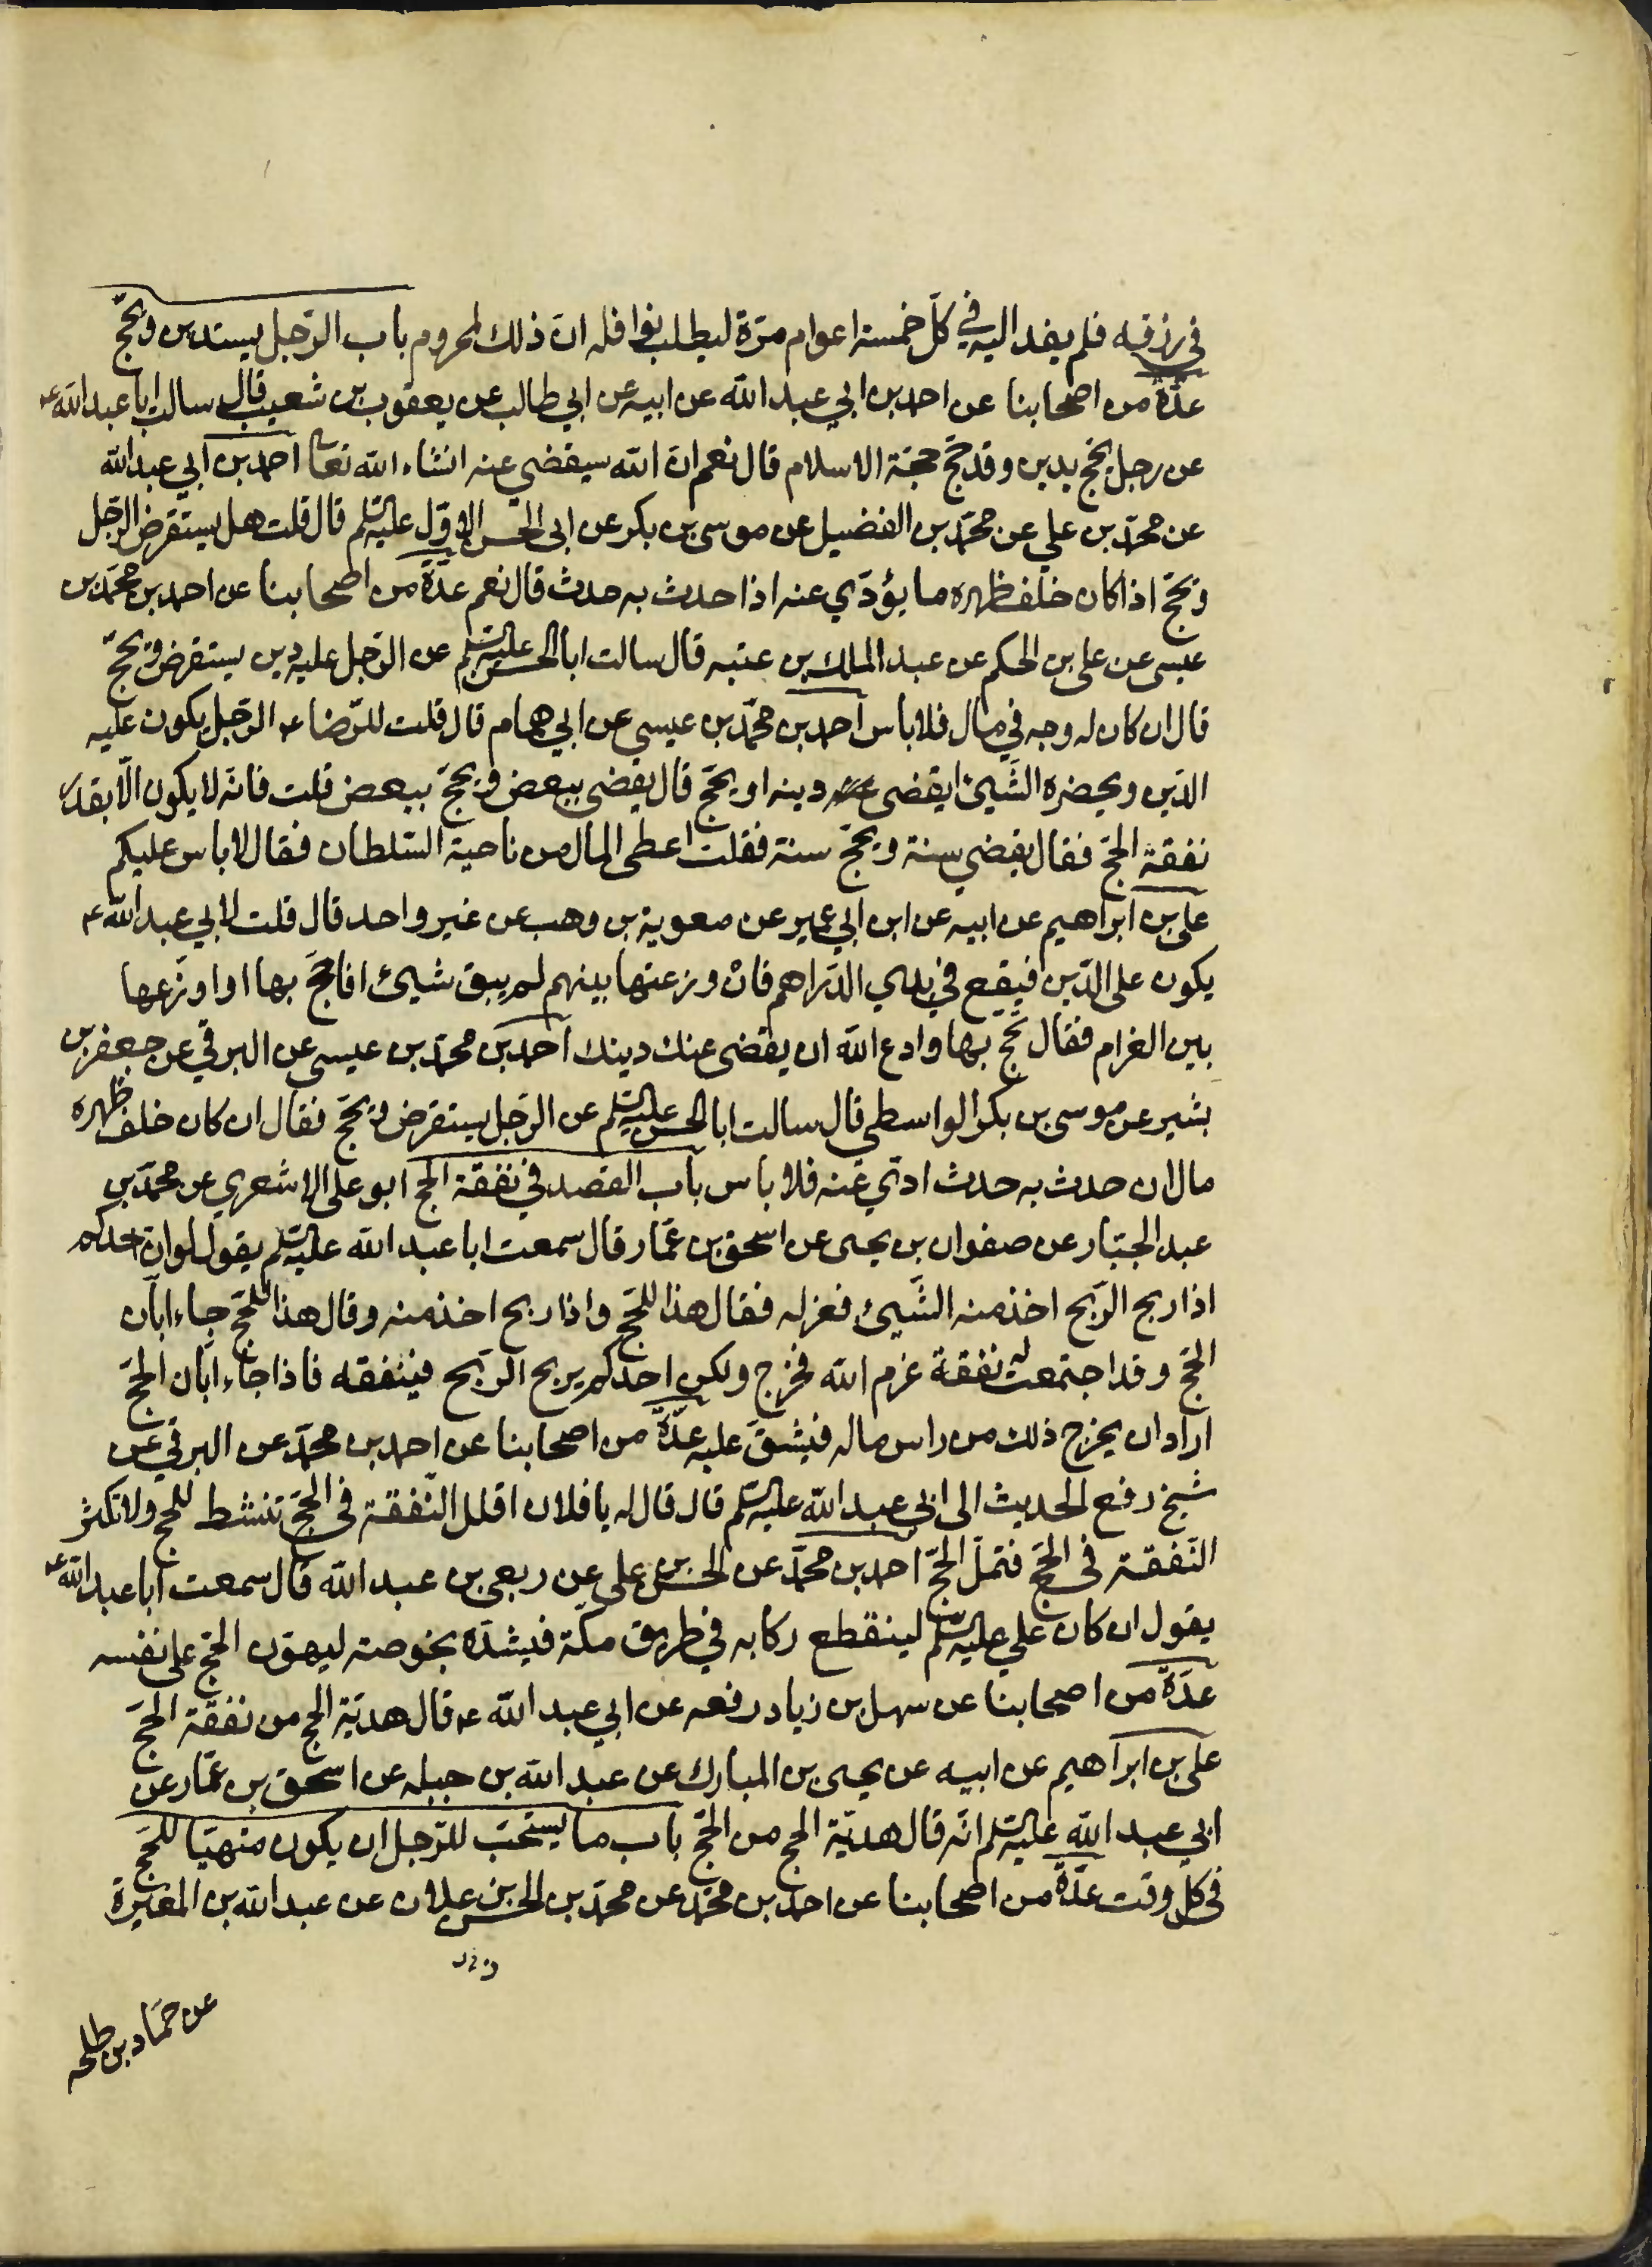 في رزقه فلم يفد اليه في كلّ خمسة اعوام مرّة ليطلب نوافله انّ ذلك لمحروم باب الرّجل يستدين ويحجّ
عدّة من اصحابنا عن احمد بن ابي عبد الله عن ابيه عن ابي طالب عن يعقوب بن شعيب قال سالت ابا عبد الله ع
عن رجل يحجّ بدين وقد حجّ حجّة الاسلام قال نعم انّ الله سيقضي عنه انشاء الله تعا احمد بن ابي عبد الله
عن محمّد بن علي عن محمّد بن الفضيل عن موسى بن بكر عن ابى الحسن الاوّل عليه السلم قال قلت هل يستقرض الرّجل
ويحجّ اذا كان خلف ظهره ما يؤدّي عنه اذا حدث به حدث قال نعم عدّة من اصحابنا عن احمد بن محمّد بن
عيسى عن على بن الحكم عن عبد الملك بن عتبه قال سالت ابا الحسن عليه السلم عن الرّجل عليه دين يستقرض ويحجّ
قال ان كان له وجه في مال فلا باس احمد بن محمّد بن عيسى عن ابي همام قال قلت للرّضا ع الرّجل يكون عليه
الدّين ويحضره الشّيئ ايقضى دينه او يحجّ قال يقضى ببعض ويحجّ ببعض قلت فانّه لا يكون الّا بقدر
نفقة الحجّ فقال يقضي سنة ويحجّ سنة فقلت اعطى المال من ناحية السّلطان فقال لا باس عليكم
على بن ابراهيم عن ابيه عن ابن ابي عمير عن معوية بن وهب عن غير واحد قال قلت لابي عبد الله ع
يكون على الدّين فيقع في يدي الدّراهم فان وزعتها بينهم لم يبق شيئ افاحجّ بها او اوزّعها
بين الغرام فقال حجّ بها وادع الله ان يقضى عنك دينك احمد بن محمّد بن عيسى عن البرقي عن جعفر بن
بشير عن موسى بن بكر الواسطى قال سالت ابا الحسن عليه السلم عن الرّجل يستقرض ويحجّ فقال ان كان خلف ظهره
مال ان حدث به حدث ادّي عنه فلا باس باب القصد في نفقة الحج ابو على الاشعري عن محمّد بن
عبد الجبّار عن صفوان بن يحيى عن اسحق بن عمّار قال سمعت ابا عبد الله عليه السلم يقول لو انّ احدكم
اذا ربح الرّبح اخذ منه الشّيئ فعزله فقال هذا للحجّ واذا ربح اخذ منه وقال هذا للحجّ جاء ابّان
الحجّ وقد اجتمعت له نفقة عزم الله فخرج ولكن احدكم يربح الرّبح فينفقه فاذا جاء ابّان الحجّ
اراد ان يخرج ذلك من راس ماله فيشقّ عليه عدّة من اصحابنا عن احمد بن محمّد عن البرقي عن
شيخ رفع الحديث الى ابي عبد الله عليه السلم قال قال له يا فلان اقلل النّفقة فى الحجّ تنشط للحجّ ولا تكثر
النّفقة فى الحجّ فتملّ الحجّ احمد بن محمّد عن الحسن بن على عن ربعى بن عبد الله قال سمعت ابا عبد الله ع
يقول ان كان علي عليه السلم لينقطع ركابه في طريق مكّة فيشدّه بخوصة ليهوّن الحجّ على نفسه
عدّة من اصحابنا عن سهل بن زياد رفعه عن ابي عبد الله ع قال هديّة الحج من نفقة الحجّ
على بن ابراهيم عن ابيه عن يحيى بن المبارك عن عبد الله بن جبله عن اسحق بن عمّار عن
ابي عبد الله عليه السلم انّه قال هديّة الحج من الحجّ باب ما يستحبّ للرّجل ان يكون متهيّا للحجّ
فى كل وقت عدّة من اصحابنا عن احمد بن محمّد عن محمّد بن الحسن بن علان عن عبد الله بن المغيرة
عن حمّاد بن طلحه